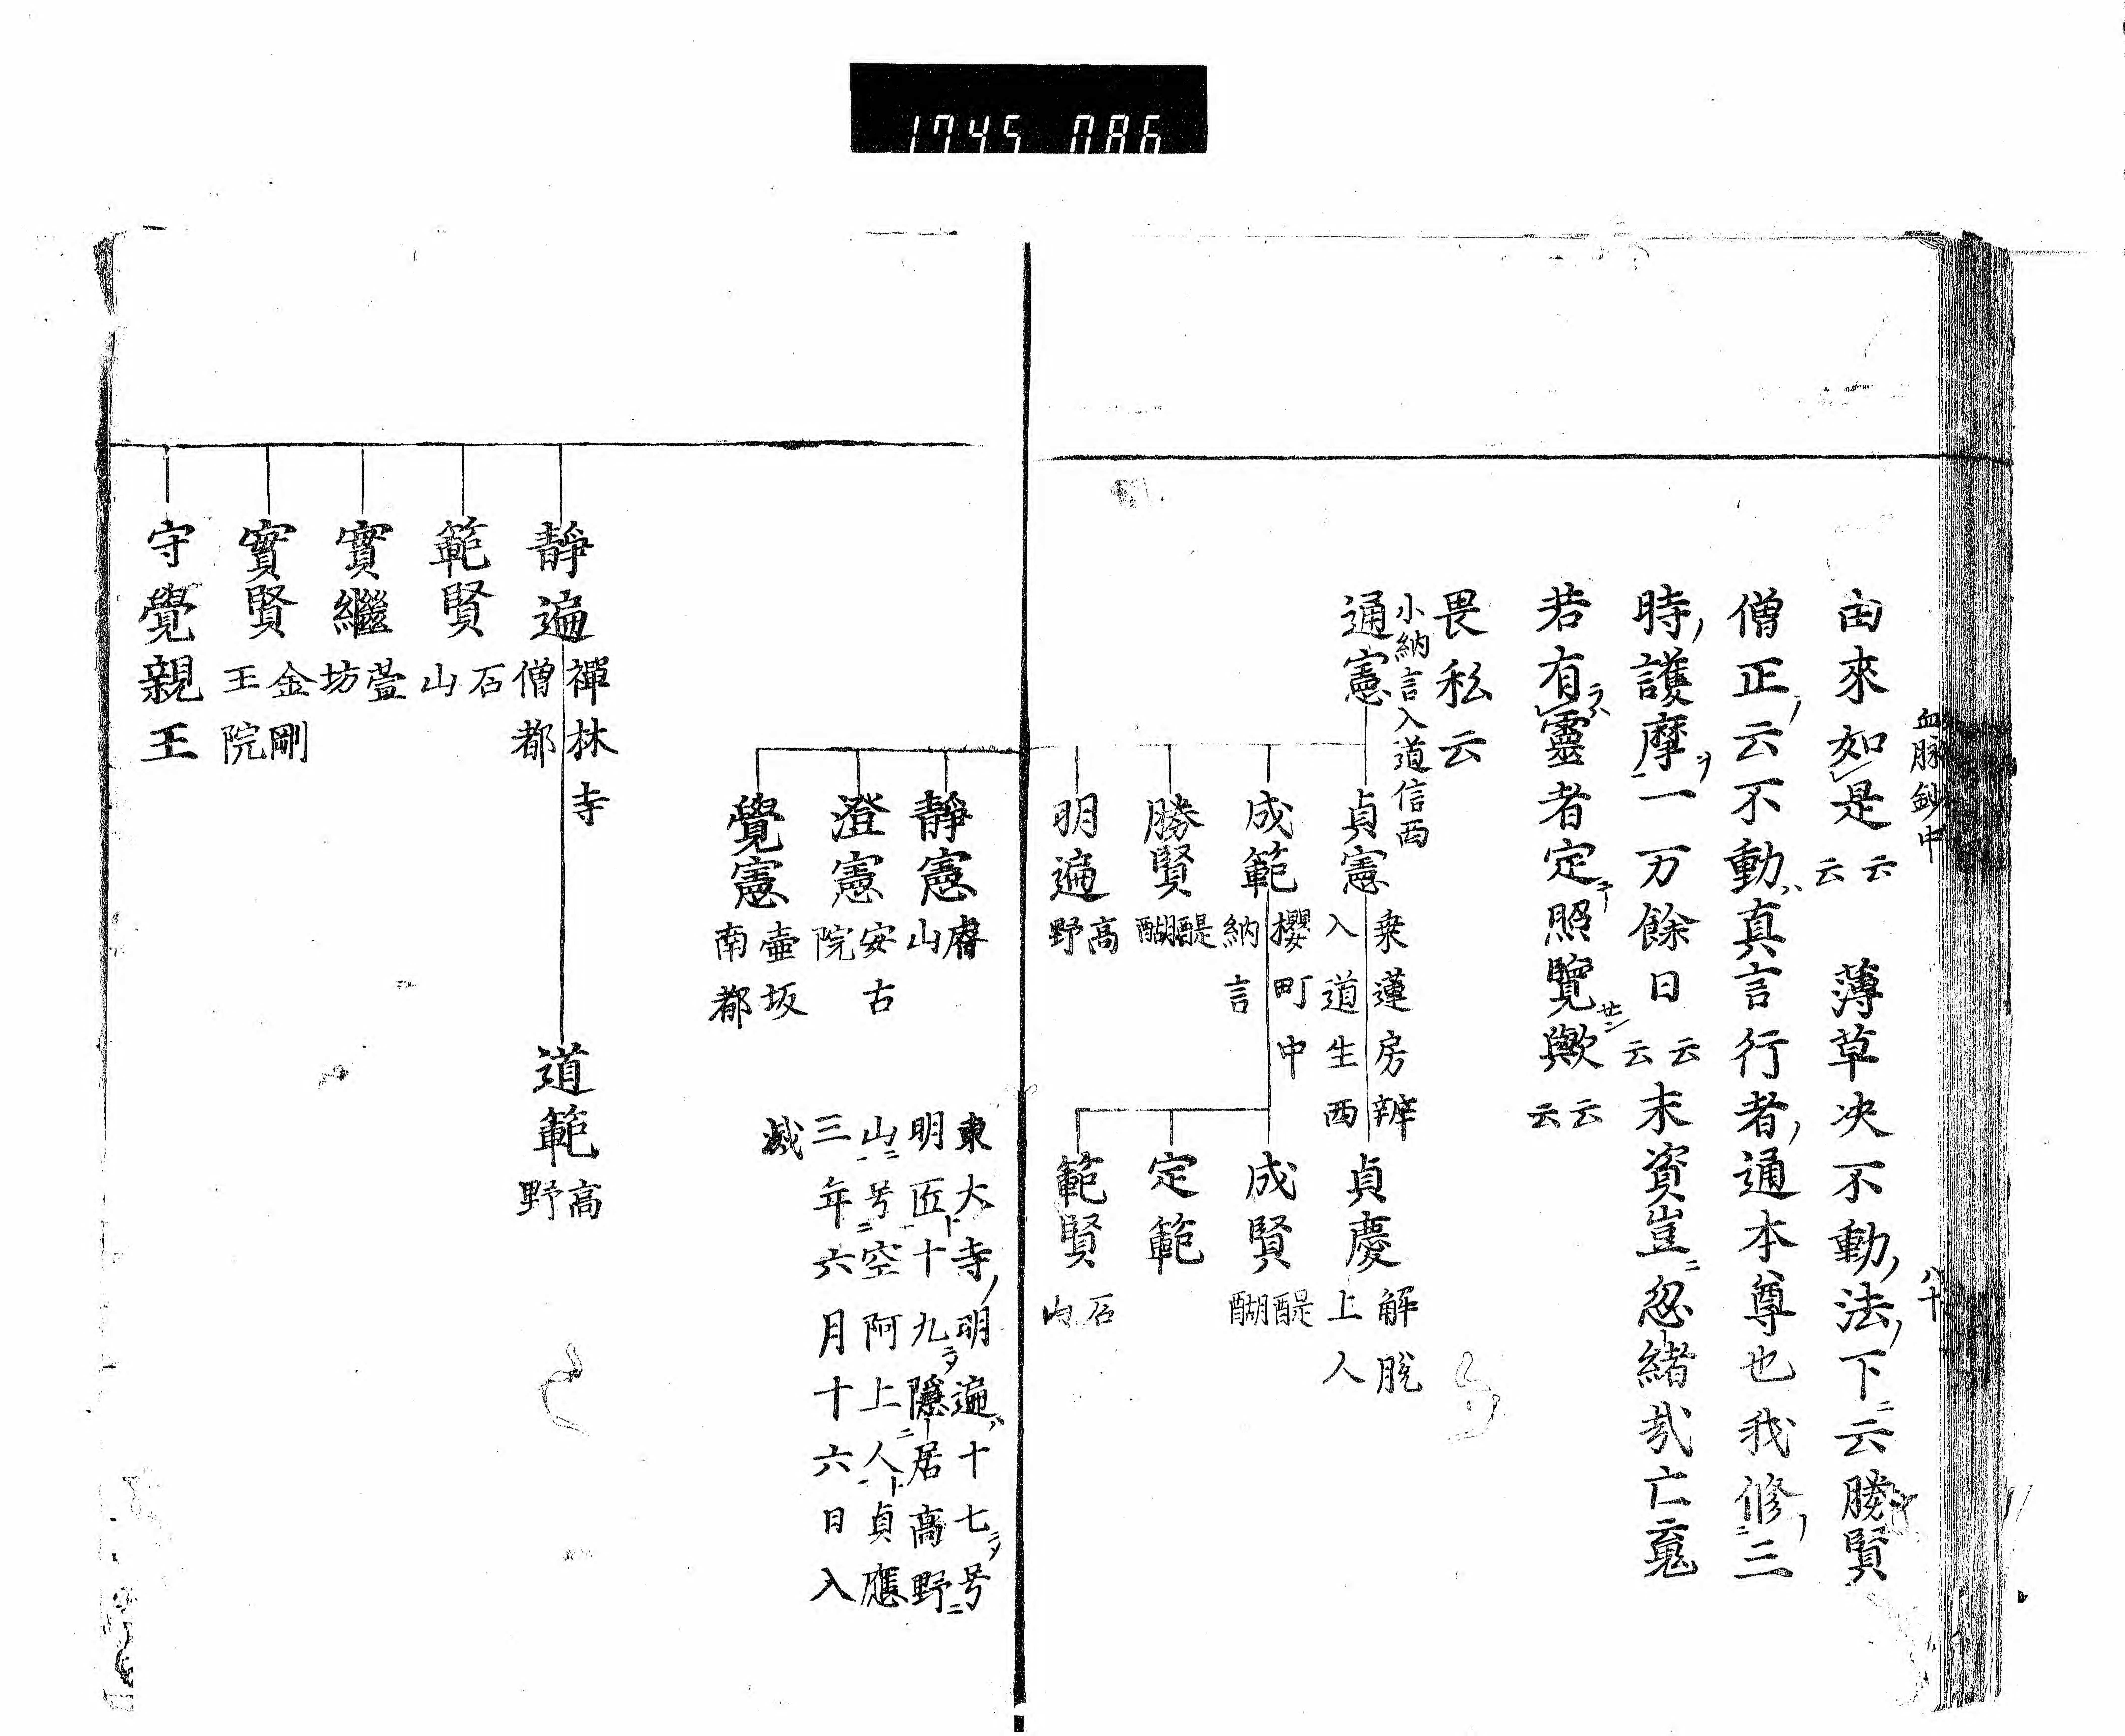 1745 086
血脉鈔中
八十
由來如是云云 薄草决不動ノ法ノ下ニ云勝賢
僧正ノ云不動ハ真言行者ノ通本尊也我修ノ三
時ノ護摩ヲ一万餘日云云末資豈ニ忽緒哉亡䰟
若有ラハ靈者定テ照覽歟云云
畏私云
小納言入道信西
通憲
貞憲 乗蓮房辨入道生西
貞慶 解脱上人
成範 櫻町中納言
成賢 醍醐
定範
範賢 石山
勝賢 醍醐
明遍 高野
靜憲
澄憲 安古院
覺憲 壷坂南都
東大寺ノ明遍ハ十七ニテ号
明匠ト十九ニテ隱居高野
山ニ号空阿上人ト貞應
三年六月十六日入
滅
靜遍 禪林寺僧都
道範 高野
範賢 石山
實繼 萱坊
實賢 金剛王院
守覺親王